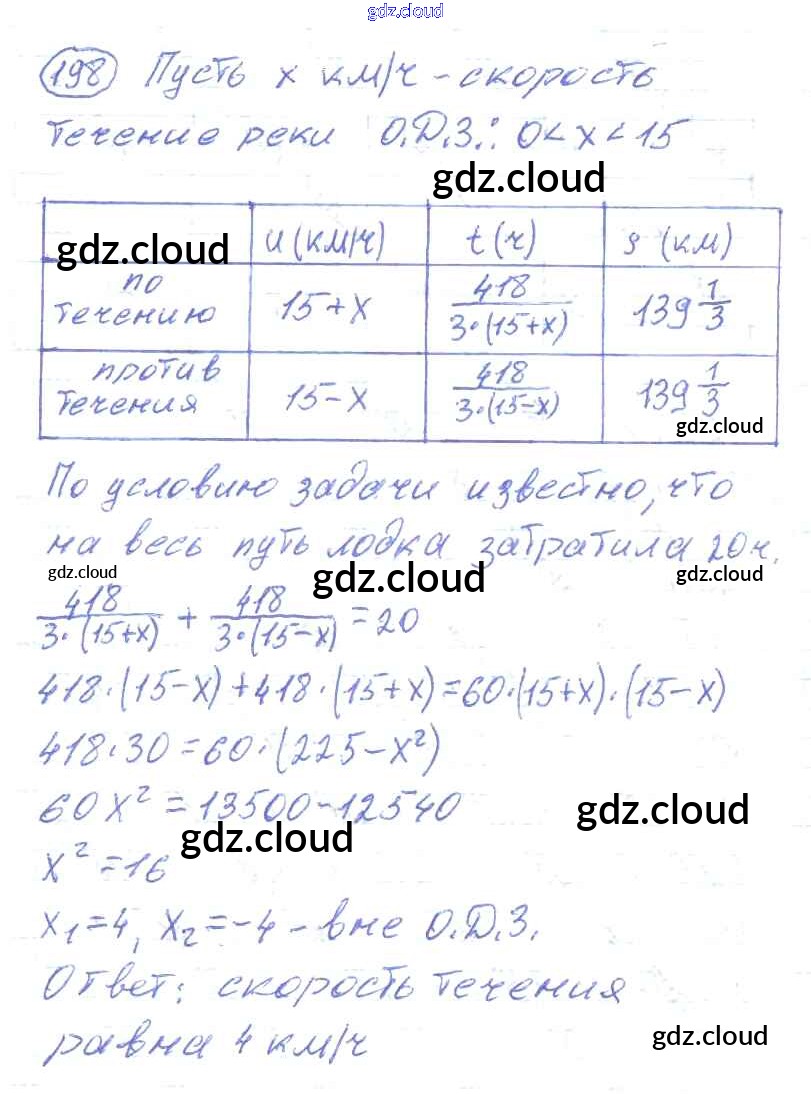 gdz.cloud
198 Пусть x км/ч - скорость
течение реки О.Д.З.: 0 < x < 15
gdz.cloud
gdz.cloud u (км/ч) t (ч) s (км)
по течению 15+x 418/3·(15+x) 139 1/3
против течения 15-x 418/3·(15-x) 139 1/3
gdz.cloud
По условию задачи известно, что
на весь путь лодка затратила 20 ч.
gdz.cloud gdz.cloud gdz.cloud
418/3·(15+x) + 418/3·(15-x) = 20
418·(15-x)+418·(15+x)=60·(15+x)·(15-x)
418·30=60·(225-x²)
60x²=13500-12540
gdz.cloud gdz.cloud
x²=16
x₁=4, x₂=-4 - вне О.Д.З.
Ответ: скорость течения
равна 4 км/ч
gdz.cloud